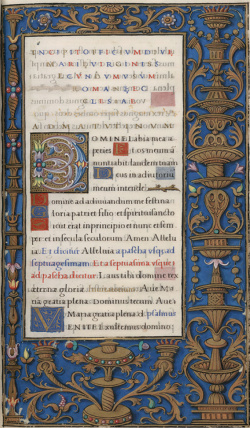 INCIPIT OFFICIVM DIVE
MARIE VIRGINIS SE
CVNDVM VSVM
ROMANE EC
CLESIAE
AD MATVTINA
DOMINE labia mea a
peries Et os meum ā
nuntiabit laudem tuam
Deus in adiutoriū
meum intende
Domine ad adiuuandum me festina
Gloria patri et filio et spiritui sancto
Sicut erat in principio et nunc et sem
per et in secula seculorum Amen Allelu
ia Et dicitur Alleluia a pascha usq; ad
septuagesimam Et a septuagesima usque
ad pascha dicitur Laus tibi domine rex
eternae gloriae Aue Ma
ria gratia plena Dominus tecum Aue
Maria gratia plena psalmus
VENITE Exultemus domino